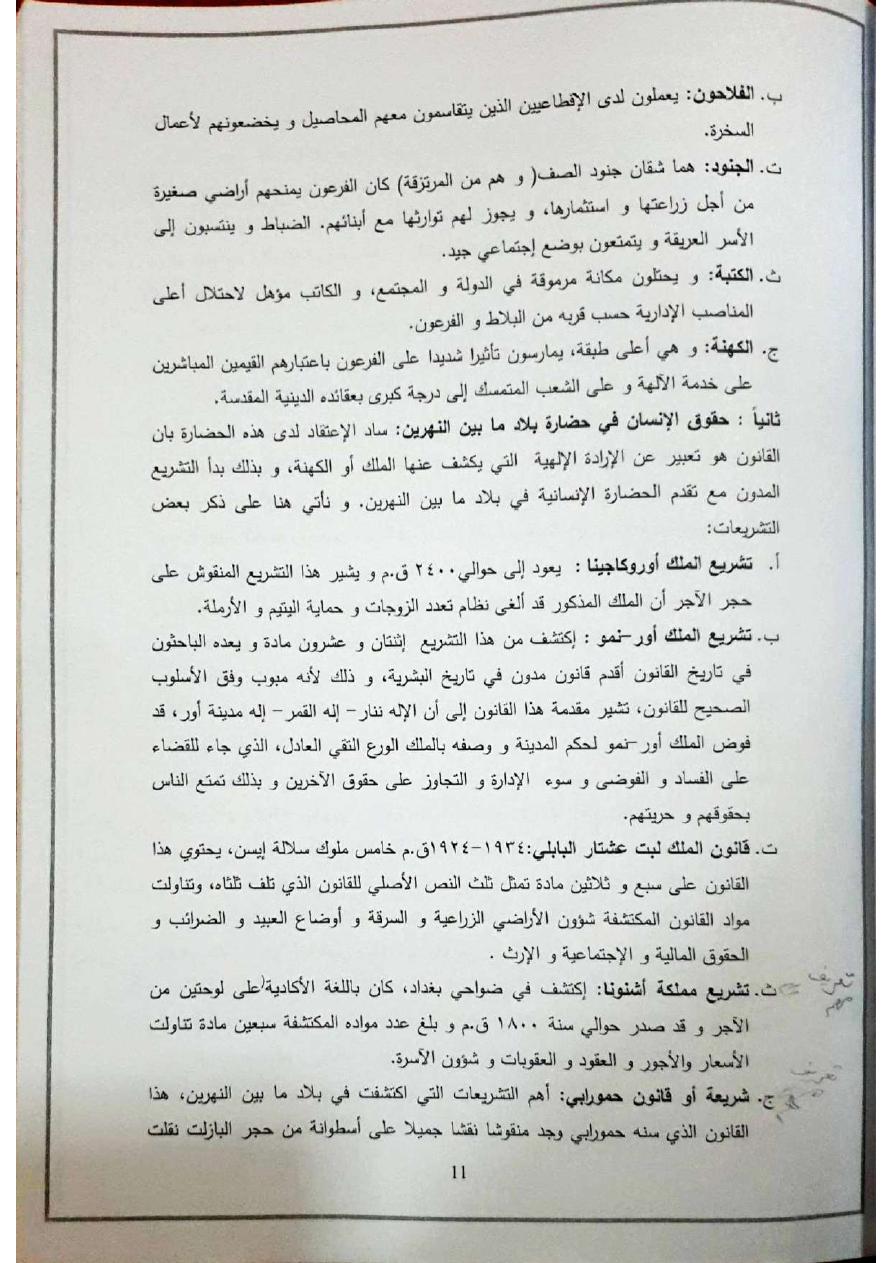 ب. الفلاحون: يعملون لدى الإقطاعيين الذين يتقاسمون معهم المحاصيل و يخضعونهم لأعمال
السخرة.
ت. الجنود: هما شقان جنود الصف( و هم من المرتزقة) كان الفرعون يمنحهم أراضي صغيرة
من أجل زراعتها و استثمارها، و يجوز لهم توارثها مع أبنائهم. الضباط و ينتسبون إلى
الأسر العريقة و يتمتعون بوضع إجتماعي جيد.
ث. الكتبة: و يحتلون مكانة مرموقة في الدولة و المجتمع، و الكاتب مؤهل لاحتلال أعلى
المناصب الإدارية حسب قربه من البلاط و الفرعون.
ج. الكهنة: و هي أعلى طبقة، يمارسون تأثيرا شديدا على الفرعون باعتبارهم القيمين المباشرين
على خدمة الآلهة و على الشعب المتمسك إلى درجة كبرى بعقائده الدينية المقدسة.
ثانياً : حقوق الإنسان في حضارة بلاد ما بين النهرين: ساد الإعتقاد لدى هذه الحضارة بان
القانون هو تعبير عن الإرادة الإلهية التي يكشف عنها الملك أو الكهنة، و بذلك بدأ التشريع
المدون مع تقدم الحضارة الإنسانية في بلاد ما بين النهرين. و نأتي هنا على ذكر بعض
التشريعات:
أ. تشريع الملك أوروكاجينا : يعود إلى حوالي ٢٤٠٠ ق.م و يشير هذا التشريع المنقوش على
حجر الآجر أن الملك المذكور قد ألغى نظام تعدد الزوجات و حماية اليتيم و الأرملة.
ب. تشريع الملك أور-نمو : إكتشف من هذا التشريع إثنتان و عشرون مادة و يعده الباحثون
في تاريخ القانون أقدم قانون مدون في تاريخ البشرية، و ذلك لأنه مبوب وفق الأسلوب
الصحيح للقانون، تشير مقدمة هذا القانون إلى أن الإله ننار- إله القمر- إله مدينة أور، قد
فوض الملك أور-نمو لحكم المدينة و وصفه بالملك الورع التقي العادل، الذي جاء للقضاء
على الفساد و الفوضى و سوء الإدارة و التجاوز على حقوق الآخرين و بذلك تمتع الناس
بحقوقهم و حريتهم.
ت. قانون الملك لبت عشتار البابلي:١٩٣٤-١٩٢٤ق.م خامس ملوك سلالة إيسن، يحتوي هذا
القانون على سبع و ثلاثين مادة تمثل ثلث النص الأصلي للقانون الذي تلف ثلثاه، وتناولت
مواد القانون المكتشفة شؤون الأراضي الزراعية و السرقة و أوضاع العبيد و الضرائب و
الحقوق المالية و الإجتماعية و الإرث .
تعريف
مهم
ث. تشريع مملكة أشنونا: إكتشف في ضواحي بغداد، كان باللغة الأكادية(على لوحتين من
الآجر و قد صدر حوالي سنة ١٨٠٠ ق.م و بلغ عدد مواده المكتشفة سبعين مادة تناولت
الأسعار والأجور و العقود و العقوبات و شؤون الآسرة.
تعريف
ج. شريعة أو قانون حمورابي: أهم التشريعات التي اكتشفت في بلاد ما بين النهرين، هذا
القانون الذي سنه حمورابي وجد منقوشا نقشا جميلا على أسطوانة من حجر البازلت نقلت
11